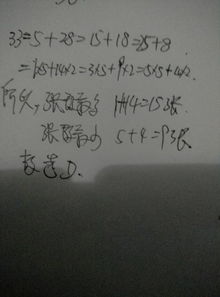 33=5+28=15+18=25+8
=1×5+14×2=3×5+9×2=5×5+4×2.
所以,张数最多 1+14=15张.
张数最少 5+4=9张.
故选D.